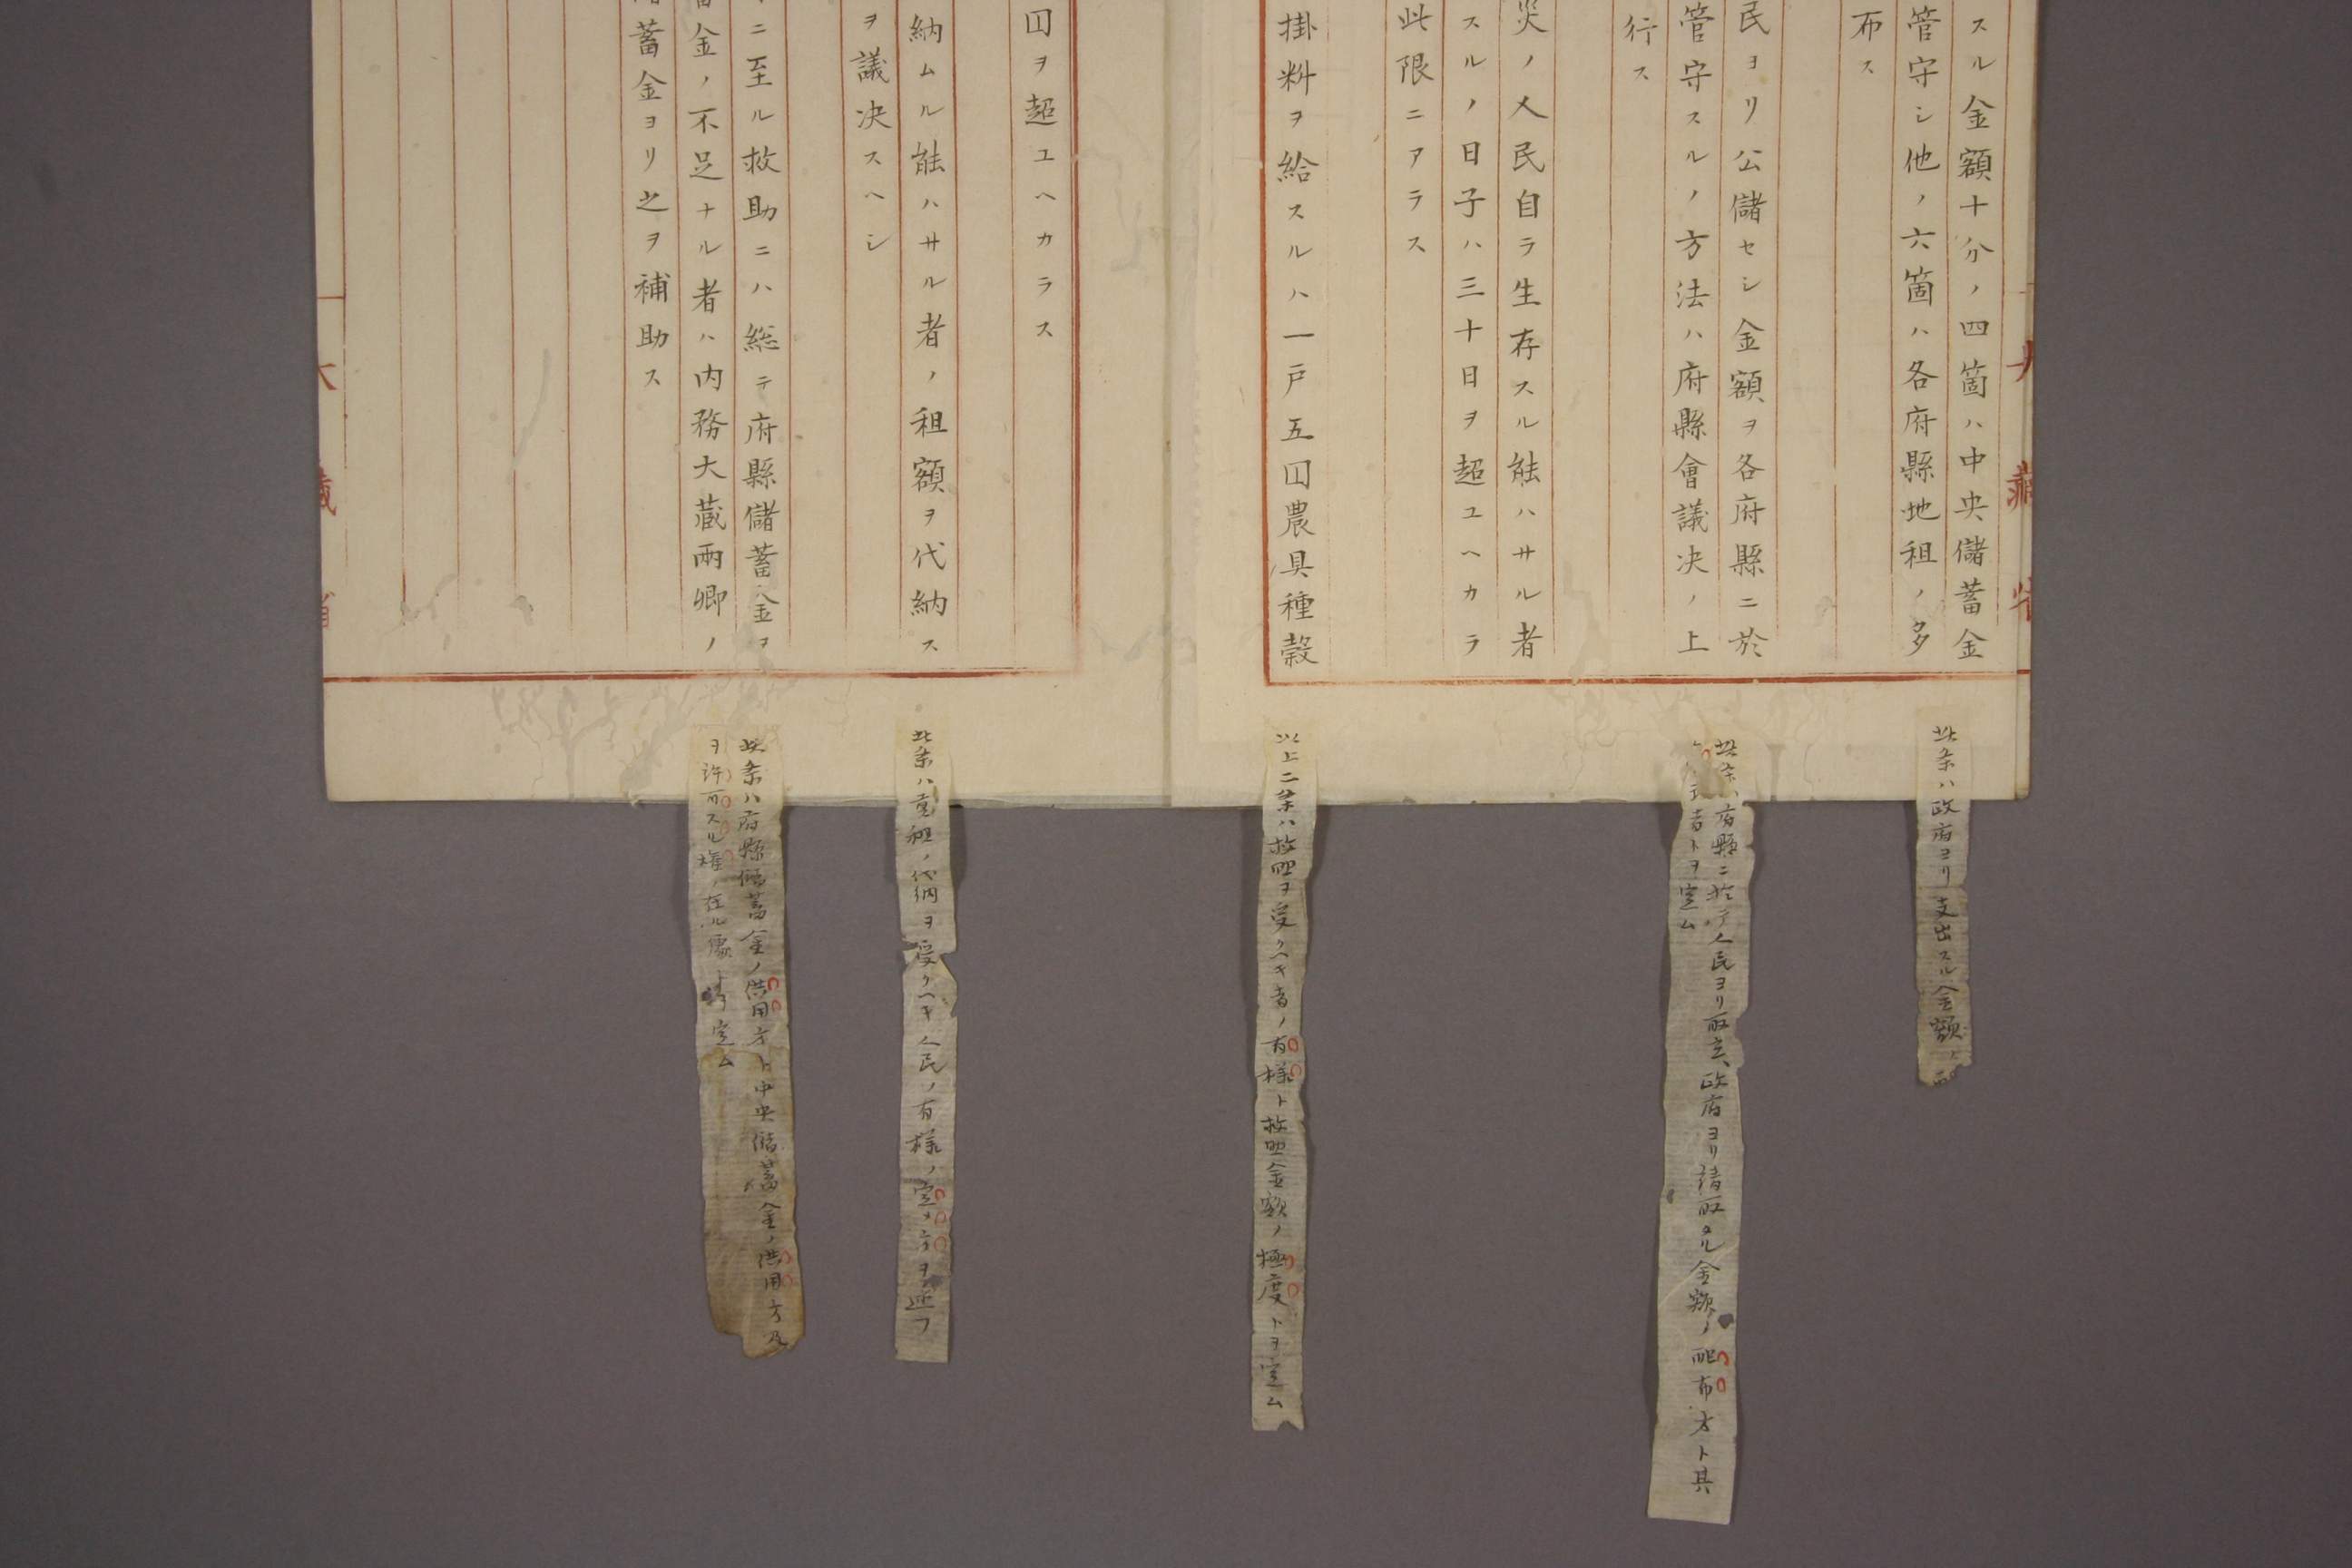 スル金額十分ノ四箇ハ中央儲蓄金
管守シ他ノ六箇ハ各府縣地租ノ多
布ス
民ヨリ公儲セシ金額ヲ各府縣ニ於
管守スルノ方法ハ府縣會議决ノ上
行ス
災ノ人民自ラ生存スル能ハサル者
スルノ日子ハ三十日ヲ超ユヘカラ
此限ニアラス
掛料ヲ給スルハ一戸五囗農具種穀
囗ヲ超ユヘカラス
納ムル能ハサル者ノ租額ヲ代納ス
ヲ議决スヘシ
ニ至ル救助ニハ総テ府縣儲蓄金ヲ
金ノ不足ナル者ハ内務大蔵兩卿ノ
蓄金ヨリ之ヲ補助ス
大藏省
大藏省
此条ハ政府ヨリ支出スル金額ノ
此条ハ府縣ニ於テ人民ヨリ取立政府ヨリ請取タル金額ノ配布方ト其
方トヲ定ム
以上二条ハ救助ヲ受クヘキ者ノ有様ト救助金額ノ極度トヲ定ム
此条ハ租ノ代納ヲ受クヘキ人民ノ有様ノ定メ方ヲ述フ
此条ハ府縣儲蓄金ノ供用方ト中央儲蓄金ノ供用方及
ヲ許可スル権ノ在ル處ヲ定ム